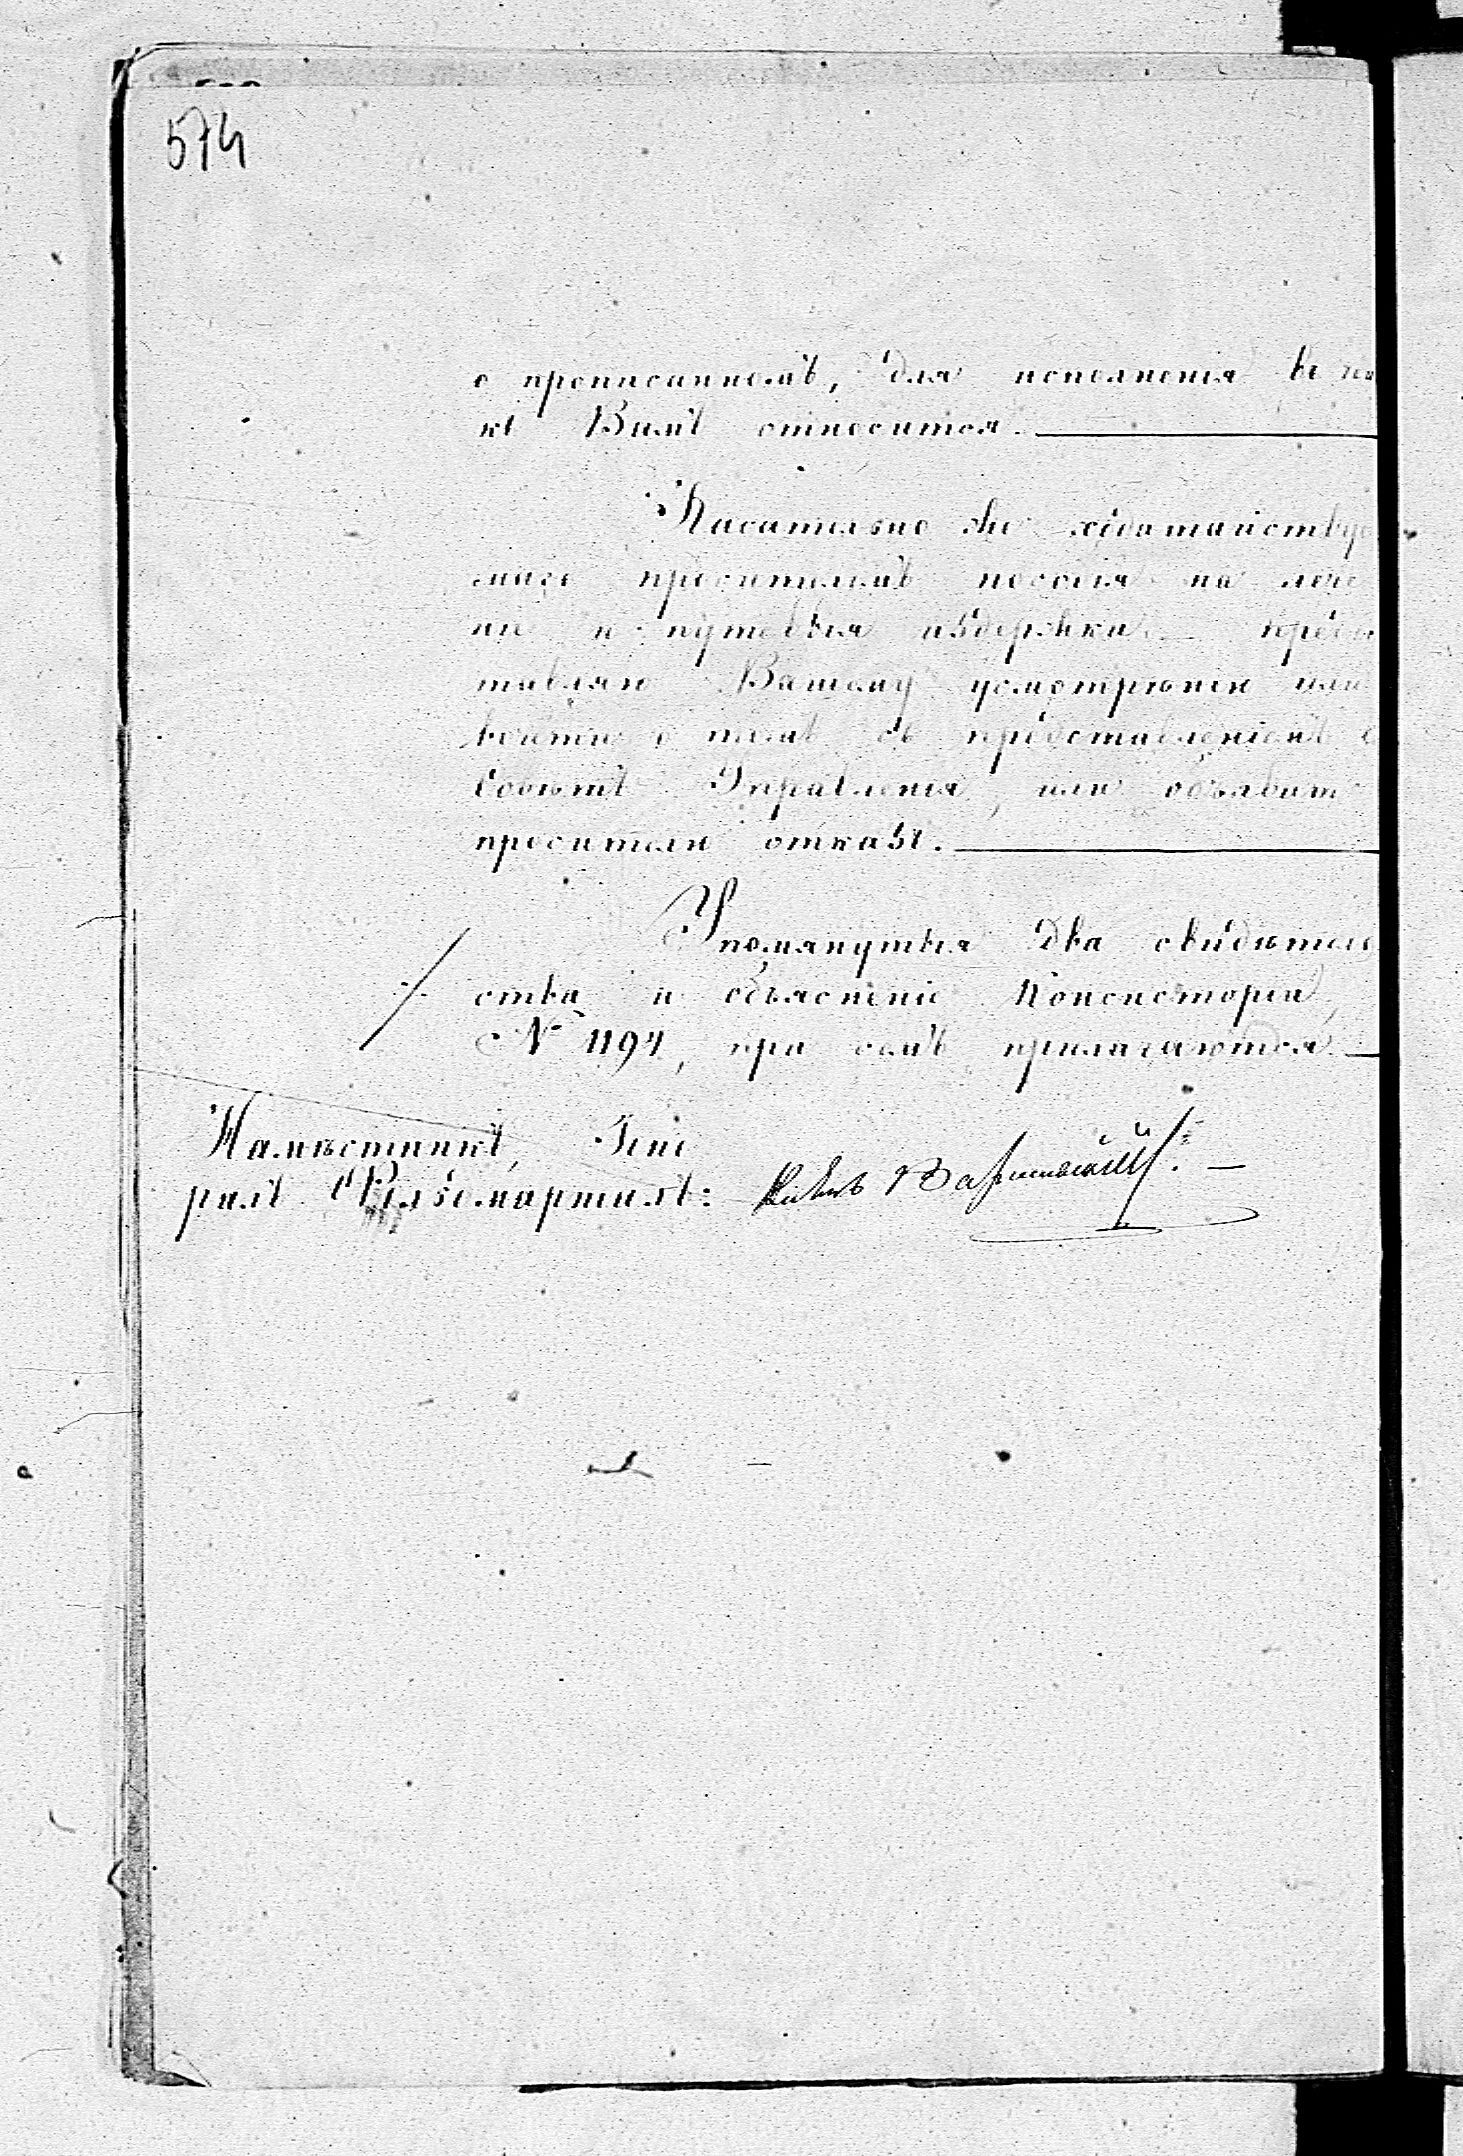 574
о прописанномъ, для исполненія въ чемъ
къ Вамъ относится.
Касательно же ходатайствуе
маго просителемъ пособія на лече
ніе и путевыя издержки предо
ставляю Вашему усмотрѣнію или
войти о томъ съ представленіемъ въ
Совѣтъ Управленія, или объявить
просителю отказъ.
Упомянутыя два свидѣтель
ства и объясненіе Консисторіи,
№ 1194, при семъ прилагаются
Намѣстникъ, Гене
ралъ Фельдмаршалъ: Князь Варшавскій